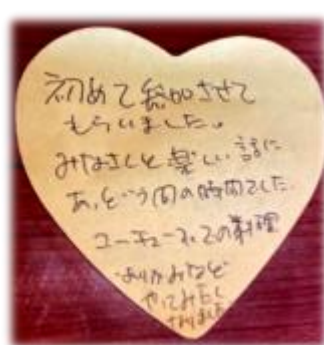 初めて参加させて
もらいました。
みなさんと楽しい話に
あっという間の時間でした
ユーチューブでの料理
おりがみなど
やってみたく
なりました